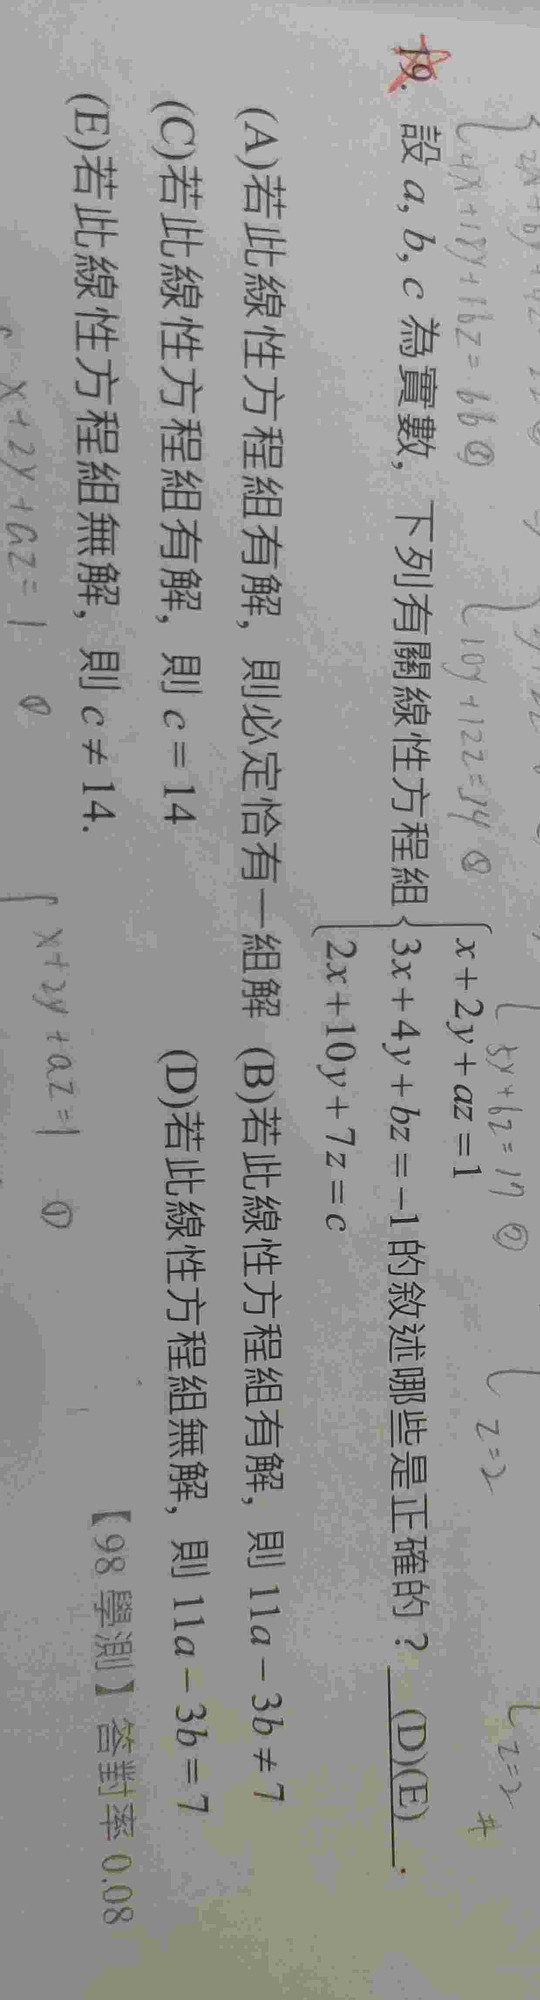 4x+18y+16z=66②
10y+12z=34③
5y+6z=17②
z=2
z=2
#
19. 設 a, b, c 為實數, 下列有關線性方程組 { x+2y+az=1
3x+4y+bz=-1 的敘述哪些是正確的? (D)(E).
2x+10y+7z=c
(A)若此線性方程組有解, 則必定恰有一組解 (B)若此線性方程組有解, 則 11a-3b≠7
(C)若此線性方程組有解, 則 c=14 (D)若此線性方程組無解, 則 11a-3b=7
(E)若此線性方程組無解, 則 c≠14.
【98 學測】答對率 0.08
x+2y+az=1 ①
x+2y+az=1 ①